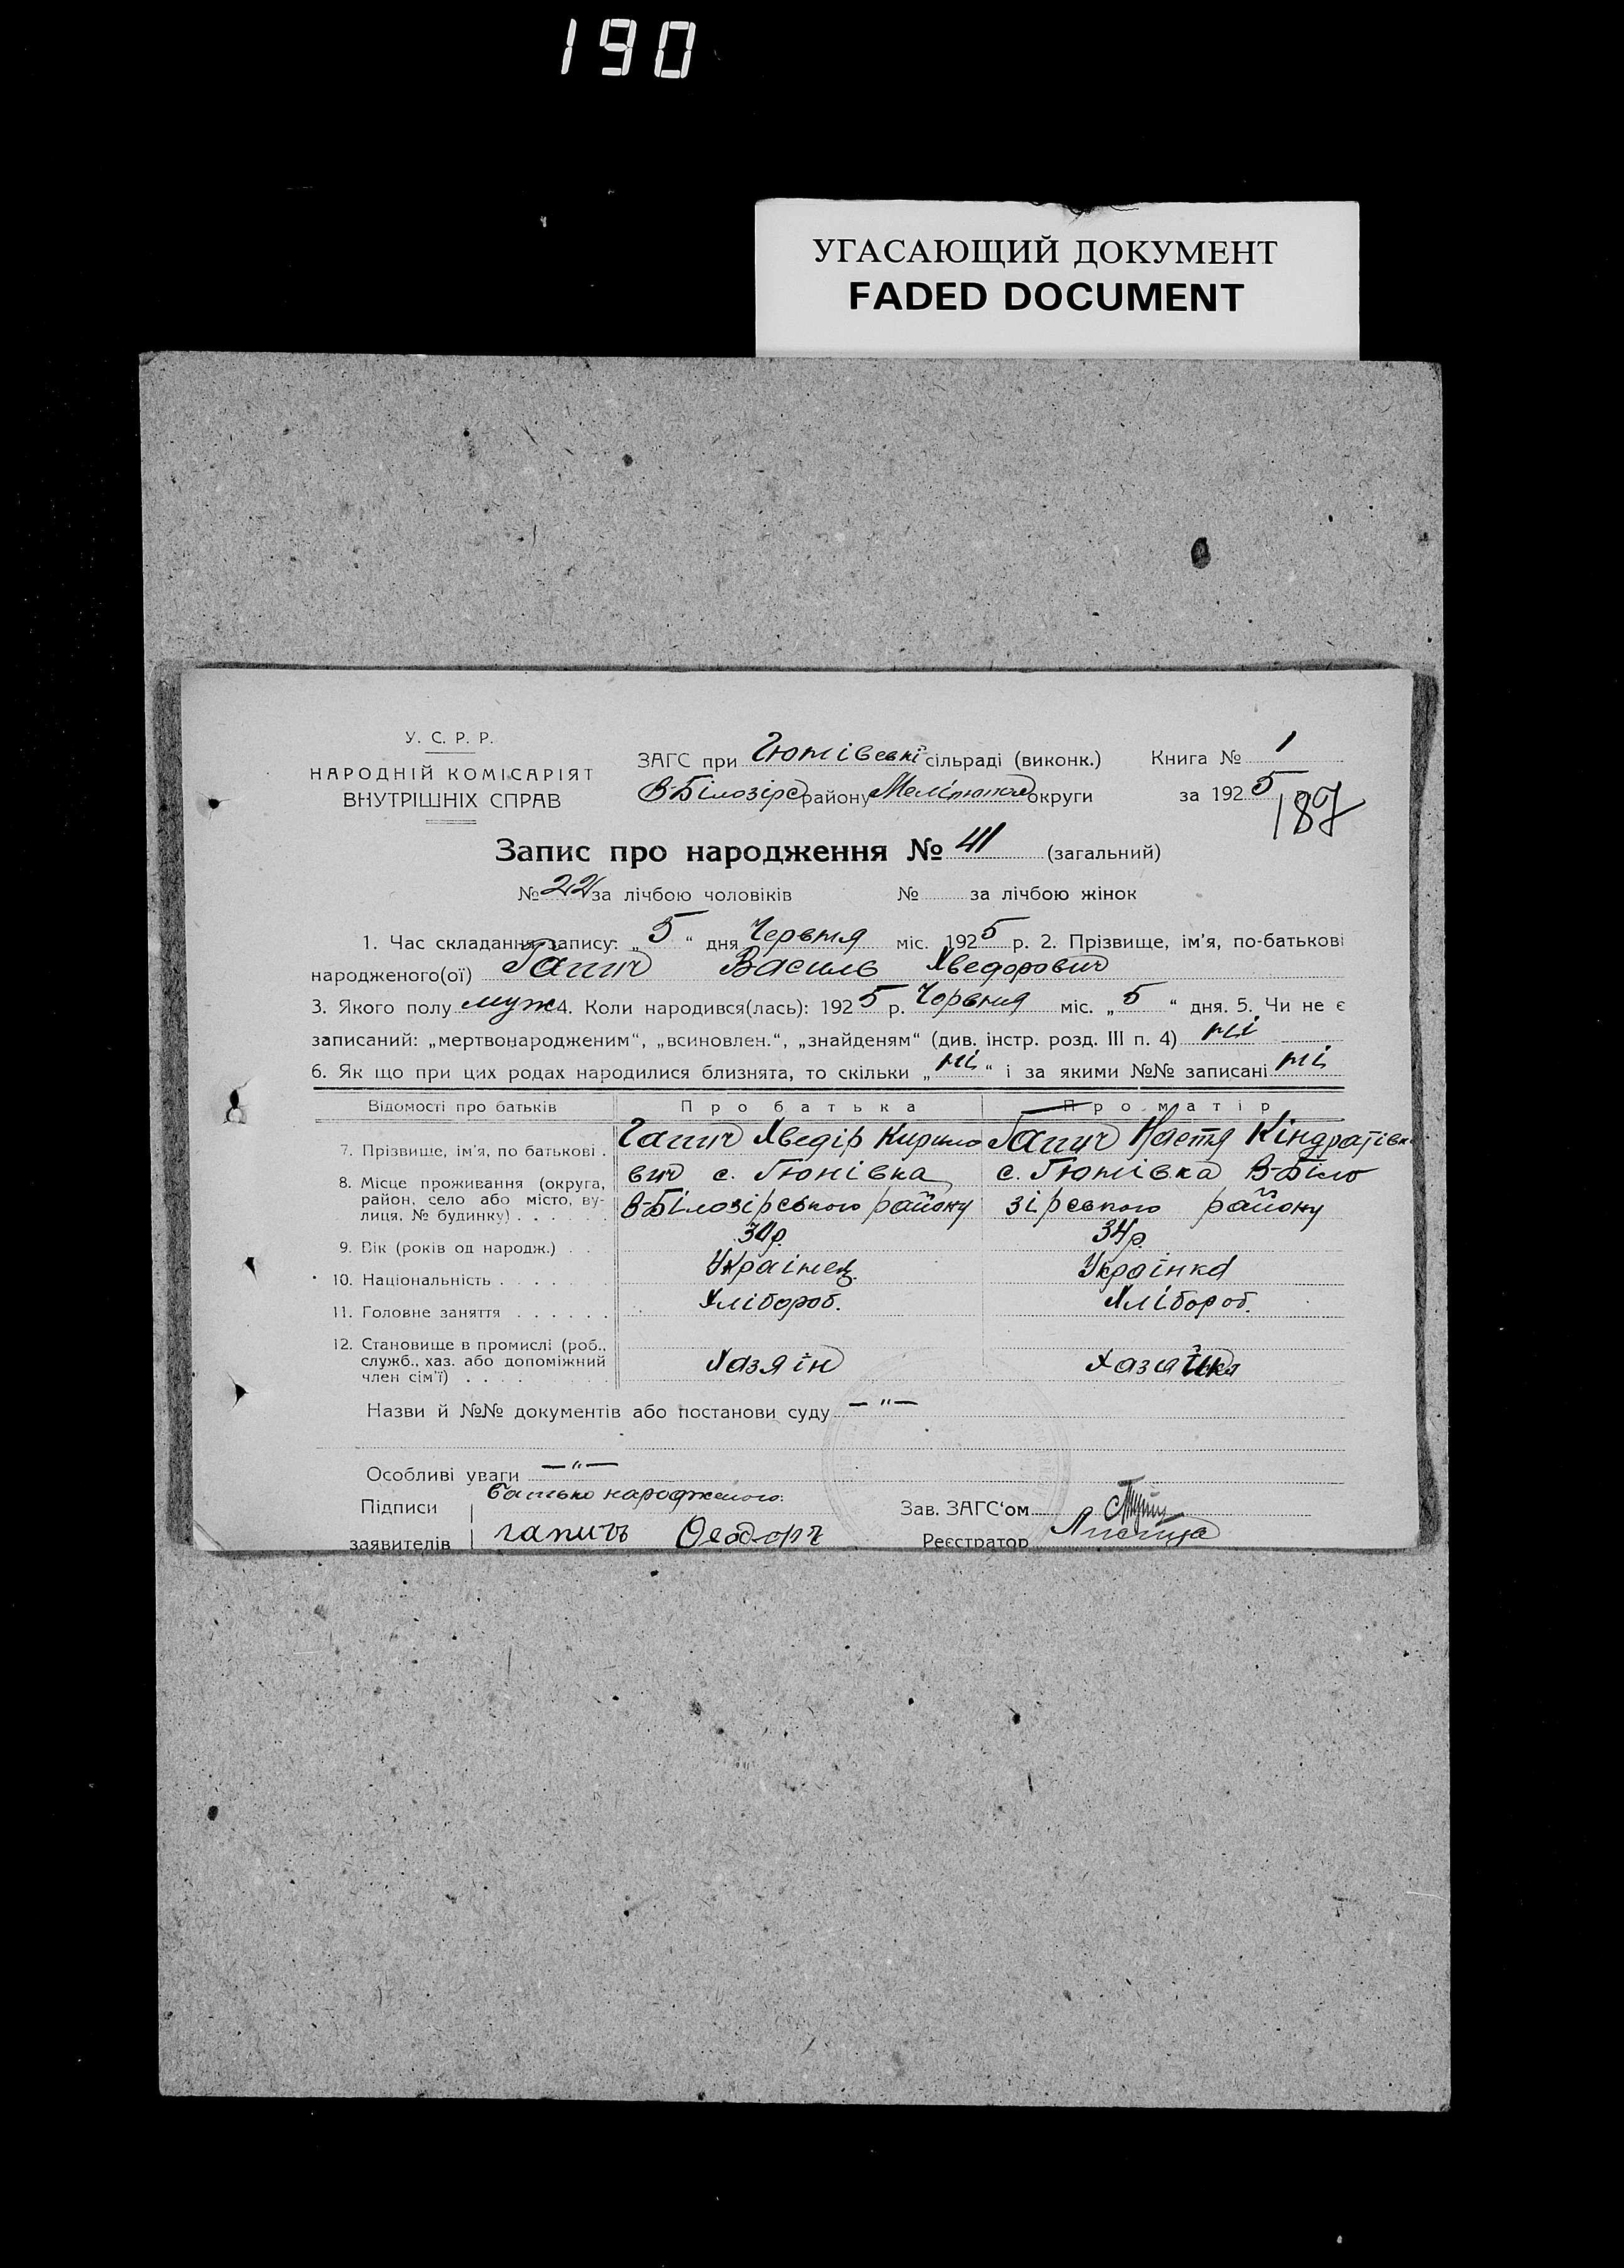 190
УГАСАЮЩИЙ ДОКУМЕНТ
FADED DOCUMENT
У. С. Р. Р.
НАРОДНІЙ КОМІСАРІЯТ
ВНУТРІШНІХ СПРАВ
ЗАГС при Гюнівській сільраді (виконк.) Книга № 1
В-Білозірс району Мелітопол округи за 1925
187
Запис про народження № 41 (загальний)
№ 22 за лічбою чоловіків № за лічбою жінок
1. Час складання запису: „5“ дня Червня міс. 1925 р. 2. Прізвище, ім'я, по-батькові
народженого(ої) Гапич Василь Хведорович
3. Якого полу муж 4. Коли народився(лась): 1925 р. Червня міс. „5“ дня. 5. Чи не є
записаний: „мертвонародженим“, „всиновлен.“, „знайденям“ (див. інстр. розд. III п. 4) ні
6. Як що при цих родах народилися близнята, то скільки „ні“ і за якими №№ записані ні
Відомості про батьків Про батька Про матір
7. Прізвище, ім'я, по батькові . Гапич Хведір Кирило Гапич Настя Кіндратівн
вич с. Гюнівка с. Гюнівка В-Біло
8. Місце проживання (округа,
район, село або місто, ву-
лиця, № будинку) . . . . . . В-Білозірського району зірського району
9. Вік (років од народж.) . . 34р.
10. Національність . . . . . . . Українец. Українка
11. Головне заняття . . . . . . Хлібороб. Хлібороб.
12. Становище в промислі (роб.,
служб., хаз. або допоміжний
член сім'ї) . . . . Хазяїн Хазяїка
Назви й №№ документів або постанови суду — " —
Особливі уваги — " —
Батько народженого:
Підписи Зав. ЗАГС‘ом
заявителів гапичъ Феодоръ Реєстратор